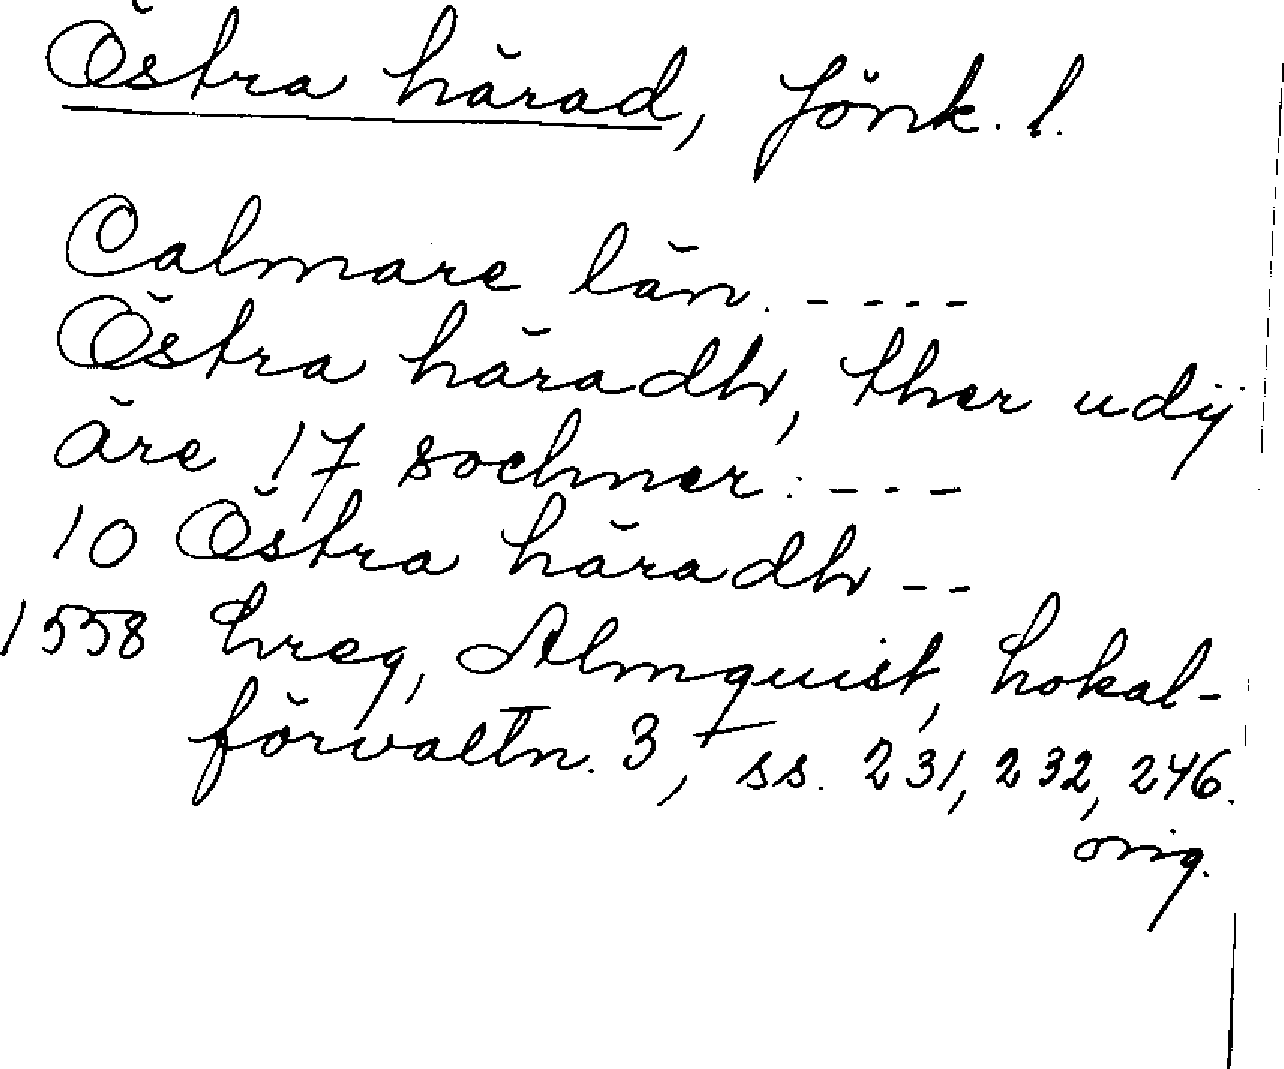 Östra härad, Jönk. l.
Calmare län. - - - -
Östra häradh, ther udij
äre 17 sochner: - - -
10 Östra häradh - -
1558 hreg, Almquist, Lokal-
förvaltn. 3, ss. 231, 232, 246.
orig.